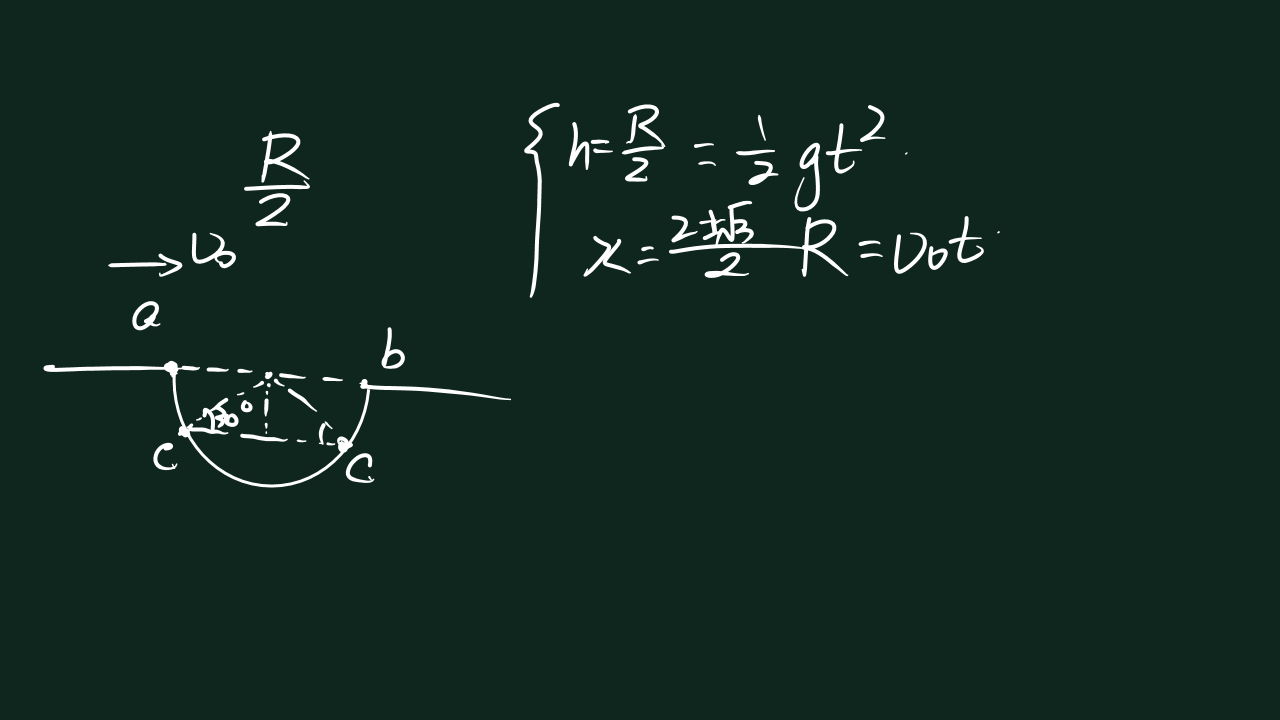 R/2
v₀
a
b
30°
c
c
{ h = R/2 = 1/2 gt²
x = (2±√3)/2 R = v₀t